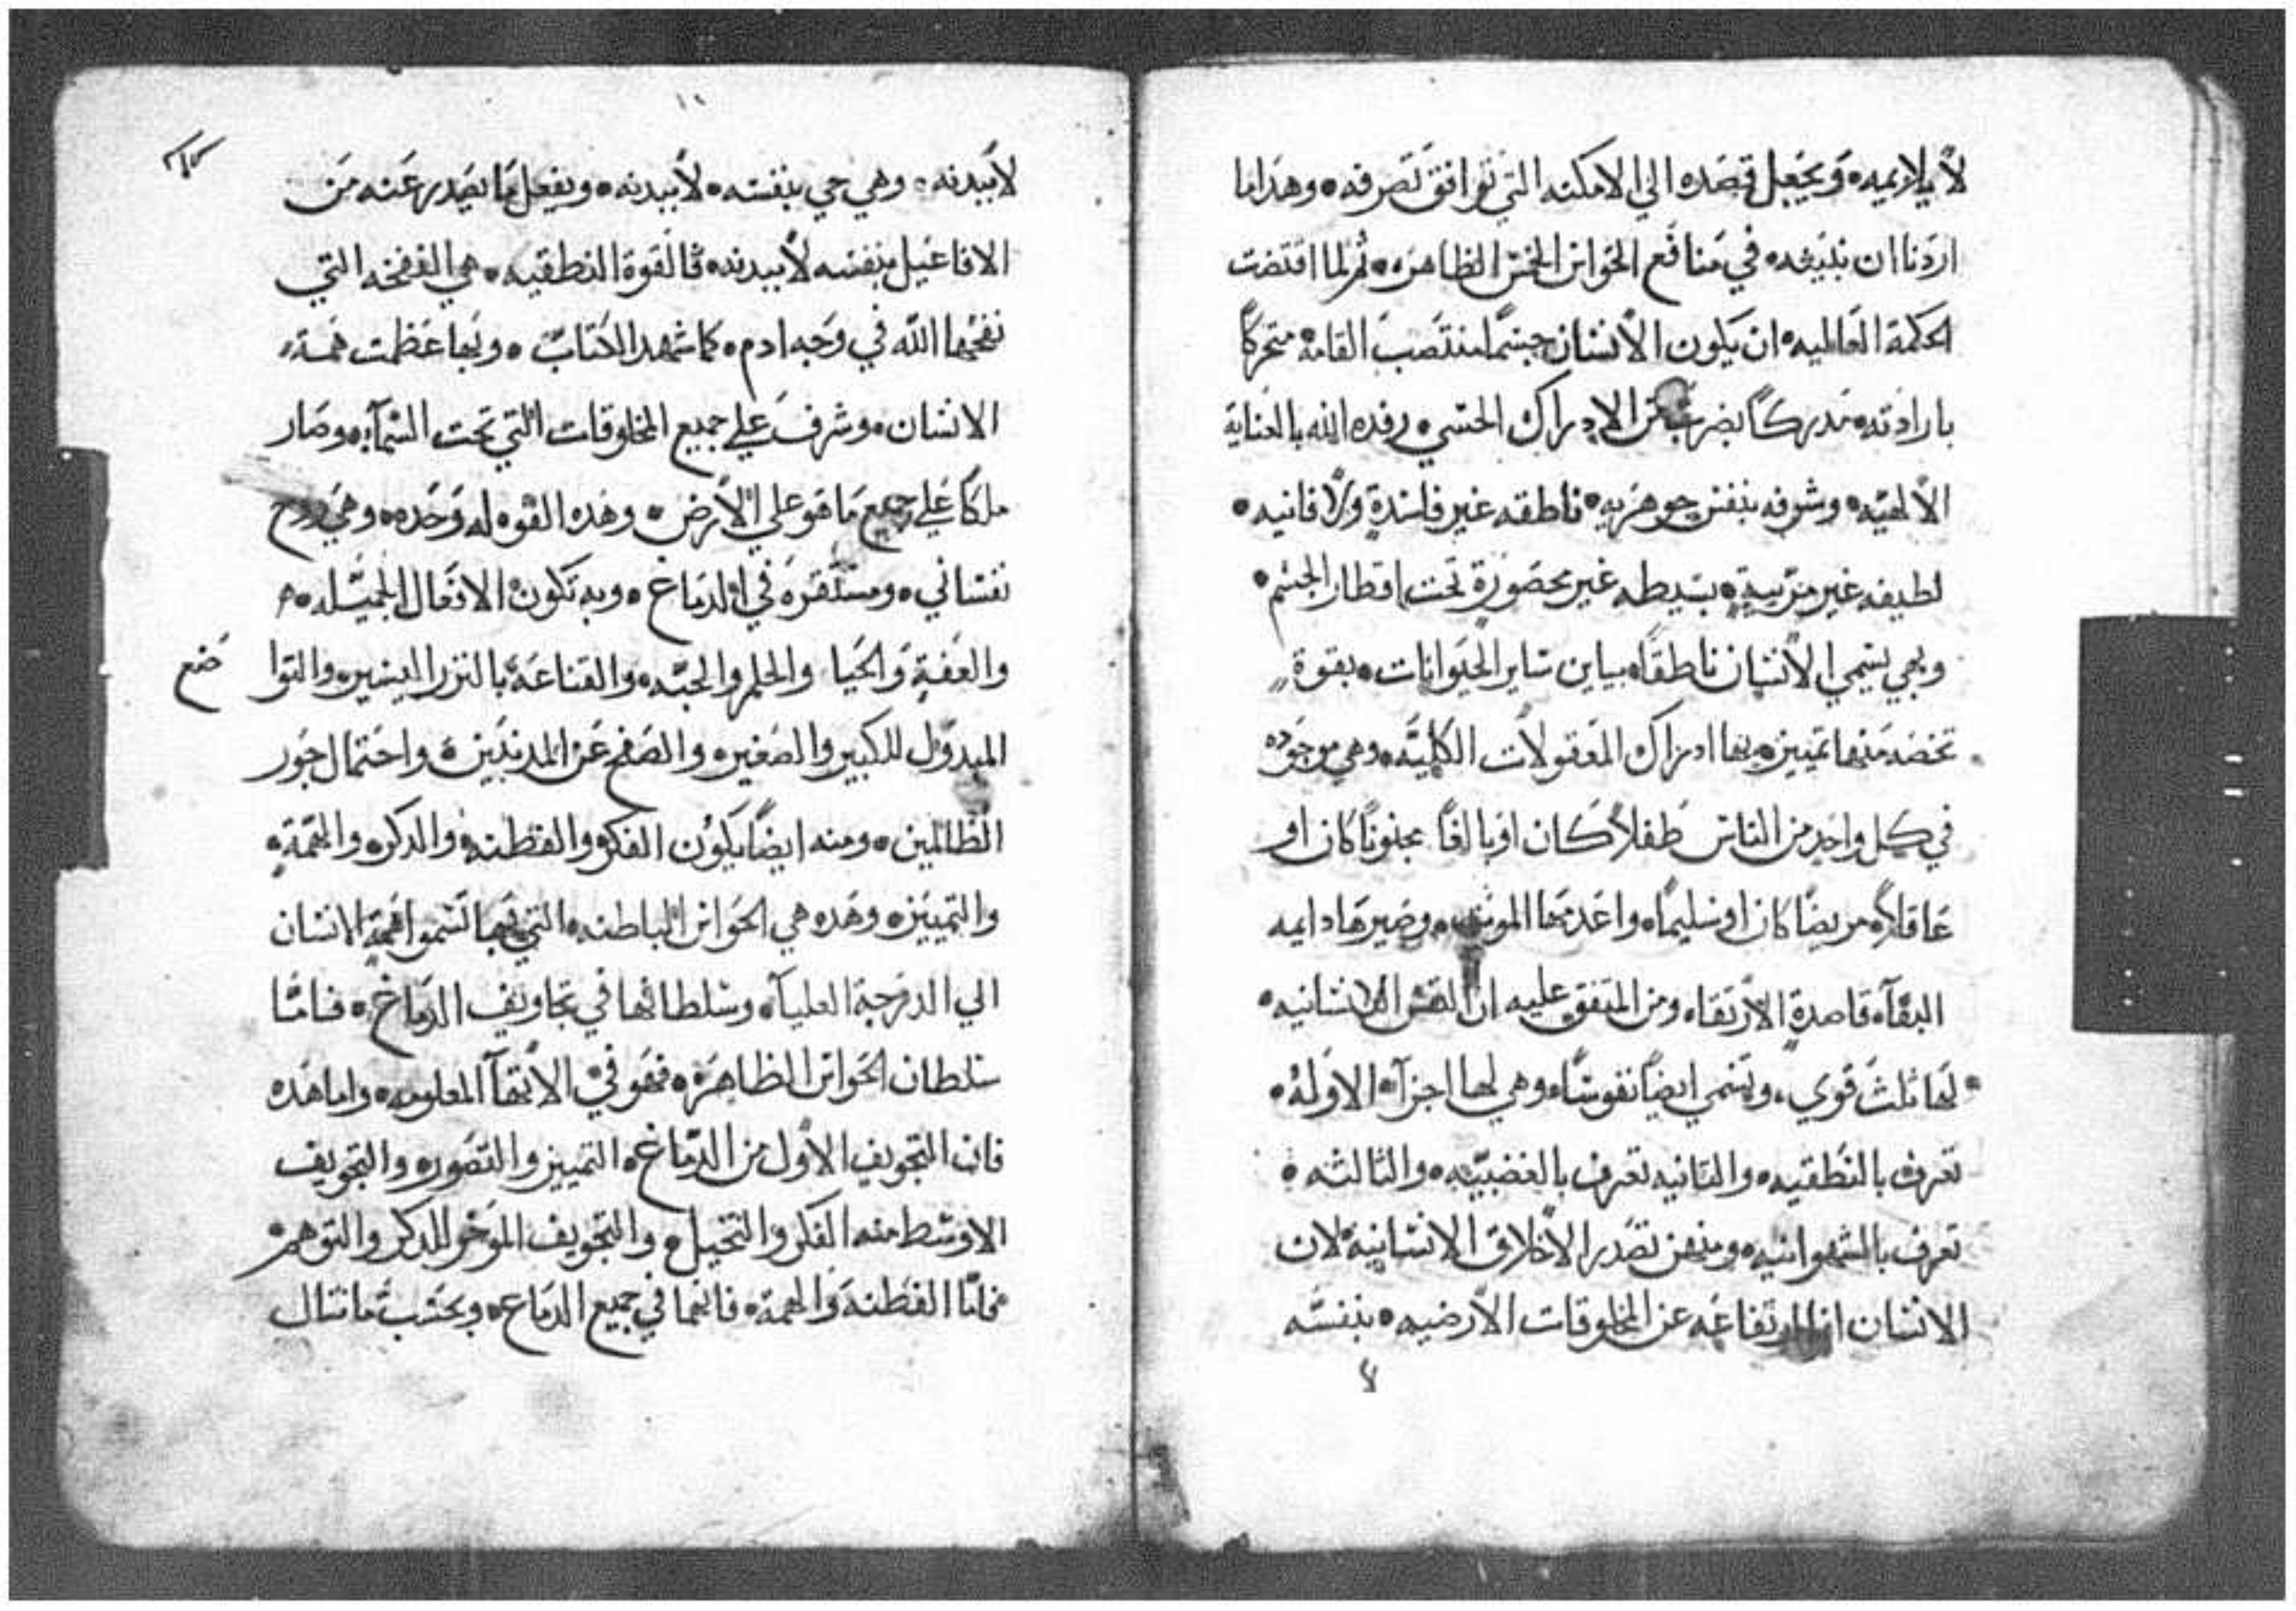 لا يلايمه۰ ويجعل قصده الي الامكنه التي توافق تصرفه۰ وهذا ما
اردنا ان نبينه۰ في منافع الحواس الخمس الظاهره۰ ثم لما اقتضت
الحكمة العالميه۰ ان يكون الانسان جسمًا منتصب القامة متحركًا
بارادته۰ مدركًا بضرب من الادراك الحسي۰ رفده الله بالعناية
الالهيّه۰ وشرفه بنفس جوهريه۰ ناطقه غير فاسدةٍ ولا فانيه۰
لطيفه غير مترتبيةٍ۰ بسيطه غير محصورةٍ تحت اقطار الجسم۰
وبهي يسمي الانسان ناطقًا۰ يباين ساير الحيوانات۰ بقوة
تخصه منها تمييز۰ بها ادراك المعقولات الكليّه۰ وهي موجوده
في كل واحدٍ من الناس طفلاً كان او بالغًا مجنونًا كان او
عاقلاً۰ مريضًا كان او سليمًا۰ واعدمها الموت۰ وصيرها دايمه
البقآ۰ قاصدةٍ الارتقا۰ ومن المتفق عليه ان النفس الانسانيه۰
لها ثلث قوي، وتسمي ايضًا نفوسًا۰ وهي لها اجزآ۰ الاولة۰
تعرف بالنطقيه۰ والثانيه تعرف بالغضبيّه۰ والثالثه۰
تعرف بالشهوانيه۰ ومنهن تصدر الاخلاق الانسانية۰ لان
الانسان انما ارتفاعه عن المخلوقات الارضيه۰ بنفسه
١١
لا ببدنه۰ وهي حي بنفسه۰ لا ببدنه۰ ويفعل ما يصدر عنه من
الافاعيل بنفسه لا ببدنه۰ فالقوة النطقيه۰ هي النفخه التي
نفخها الله في وجه ادم۰ كما شهد الكتاب۰ وبها عظمت همة
الانسان۰ وشرف علي جميع المخلوقات التي تحت السمآ۰ وصار
ملكًا علي جميع ما هو علي الارض۰ وهذه القوه له وحده۰ وهي روح
نفساني۰ ومستقره في الدماغ۰ وبه تكون الافعال الجميله۰
والعفةٍ والحيا والحلم والحبّه۰ والقناعة بالنزر اليسير۰ والتوا
ضع
المبدول للكبير والصغير۰ والصفح عن المدنبين۰ واحتمال جور
الظالمين۰ ومنه ايضًا يكون الفكر۰ والفطنه۰ والدكر۰ والهمّةٍ۰
والتمييز۰ وهده هي الحواس الباطنه۰ التي بها تسموا همةٍ الانسان
الي الدرجة العليا۰ وسلطانها في تجاويف الدماغ۰ فامّا
سلطان الحواس الظاهرة۰ فهو في الاتها المعلومه۰ واما هده
فان التجويف الاول من الدماغ۰ التمييز والتصور۰ والتجويف
الاوسط منه الفكر والتخيل۰ والتجويف الموخر للدكر والتوهم۰
فامّا الفطنه والهمة۰ فانهما في جميع الدماغ۰ وبحسب ما تنال